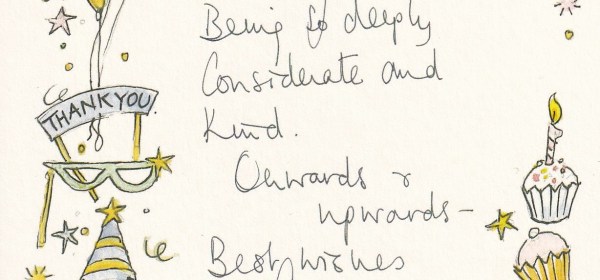 Being so deeply
Considerate and
Kind.
THANK YOU
Onwards &
upwards –
Best wishes